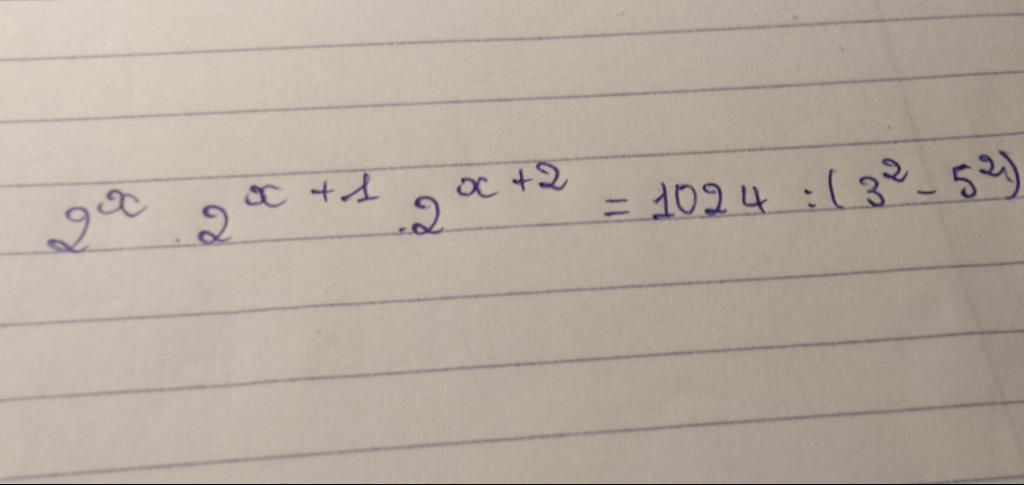 2^x . 2^{x+1} . 2^{x+2} = 1024 : (3^2 - 5^2)